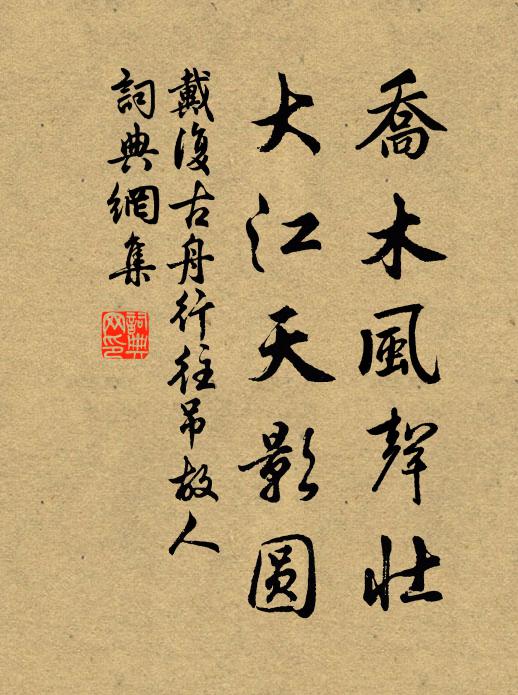 喬木風聲壯
大江天影圓
戴復古舟行往吊故人
詞典網集
詞典网印